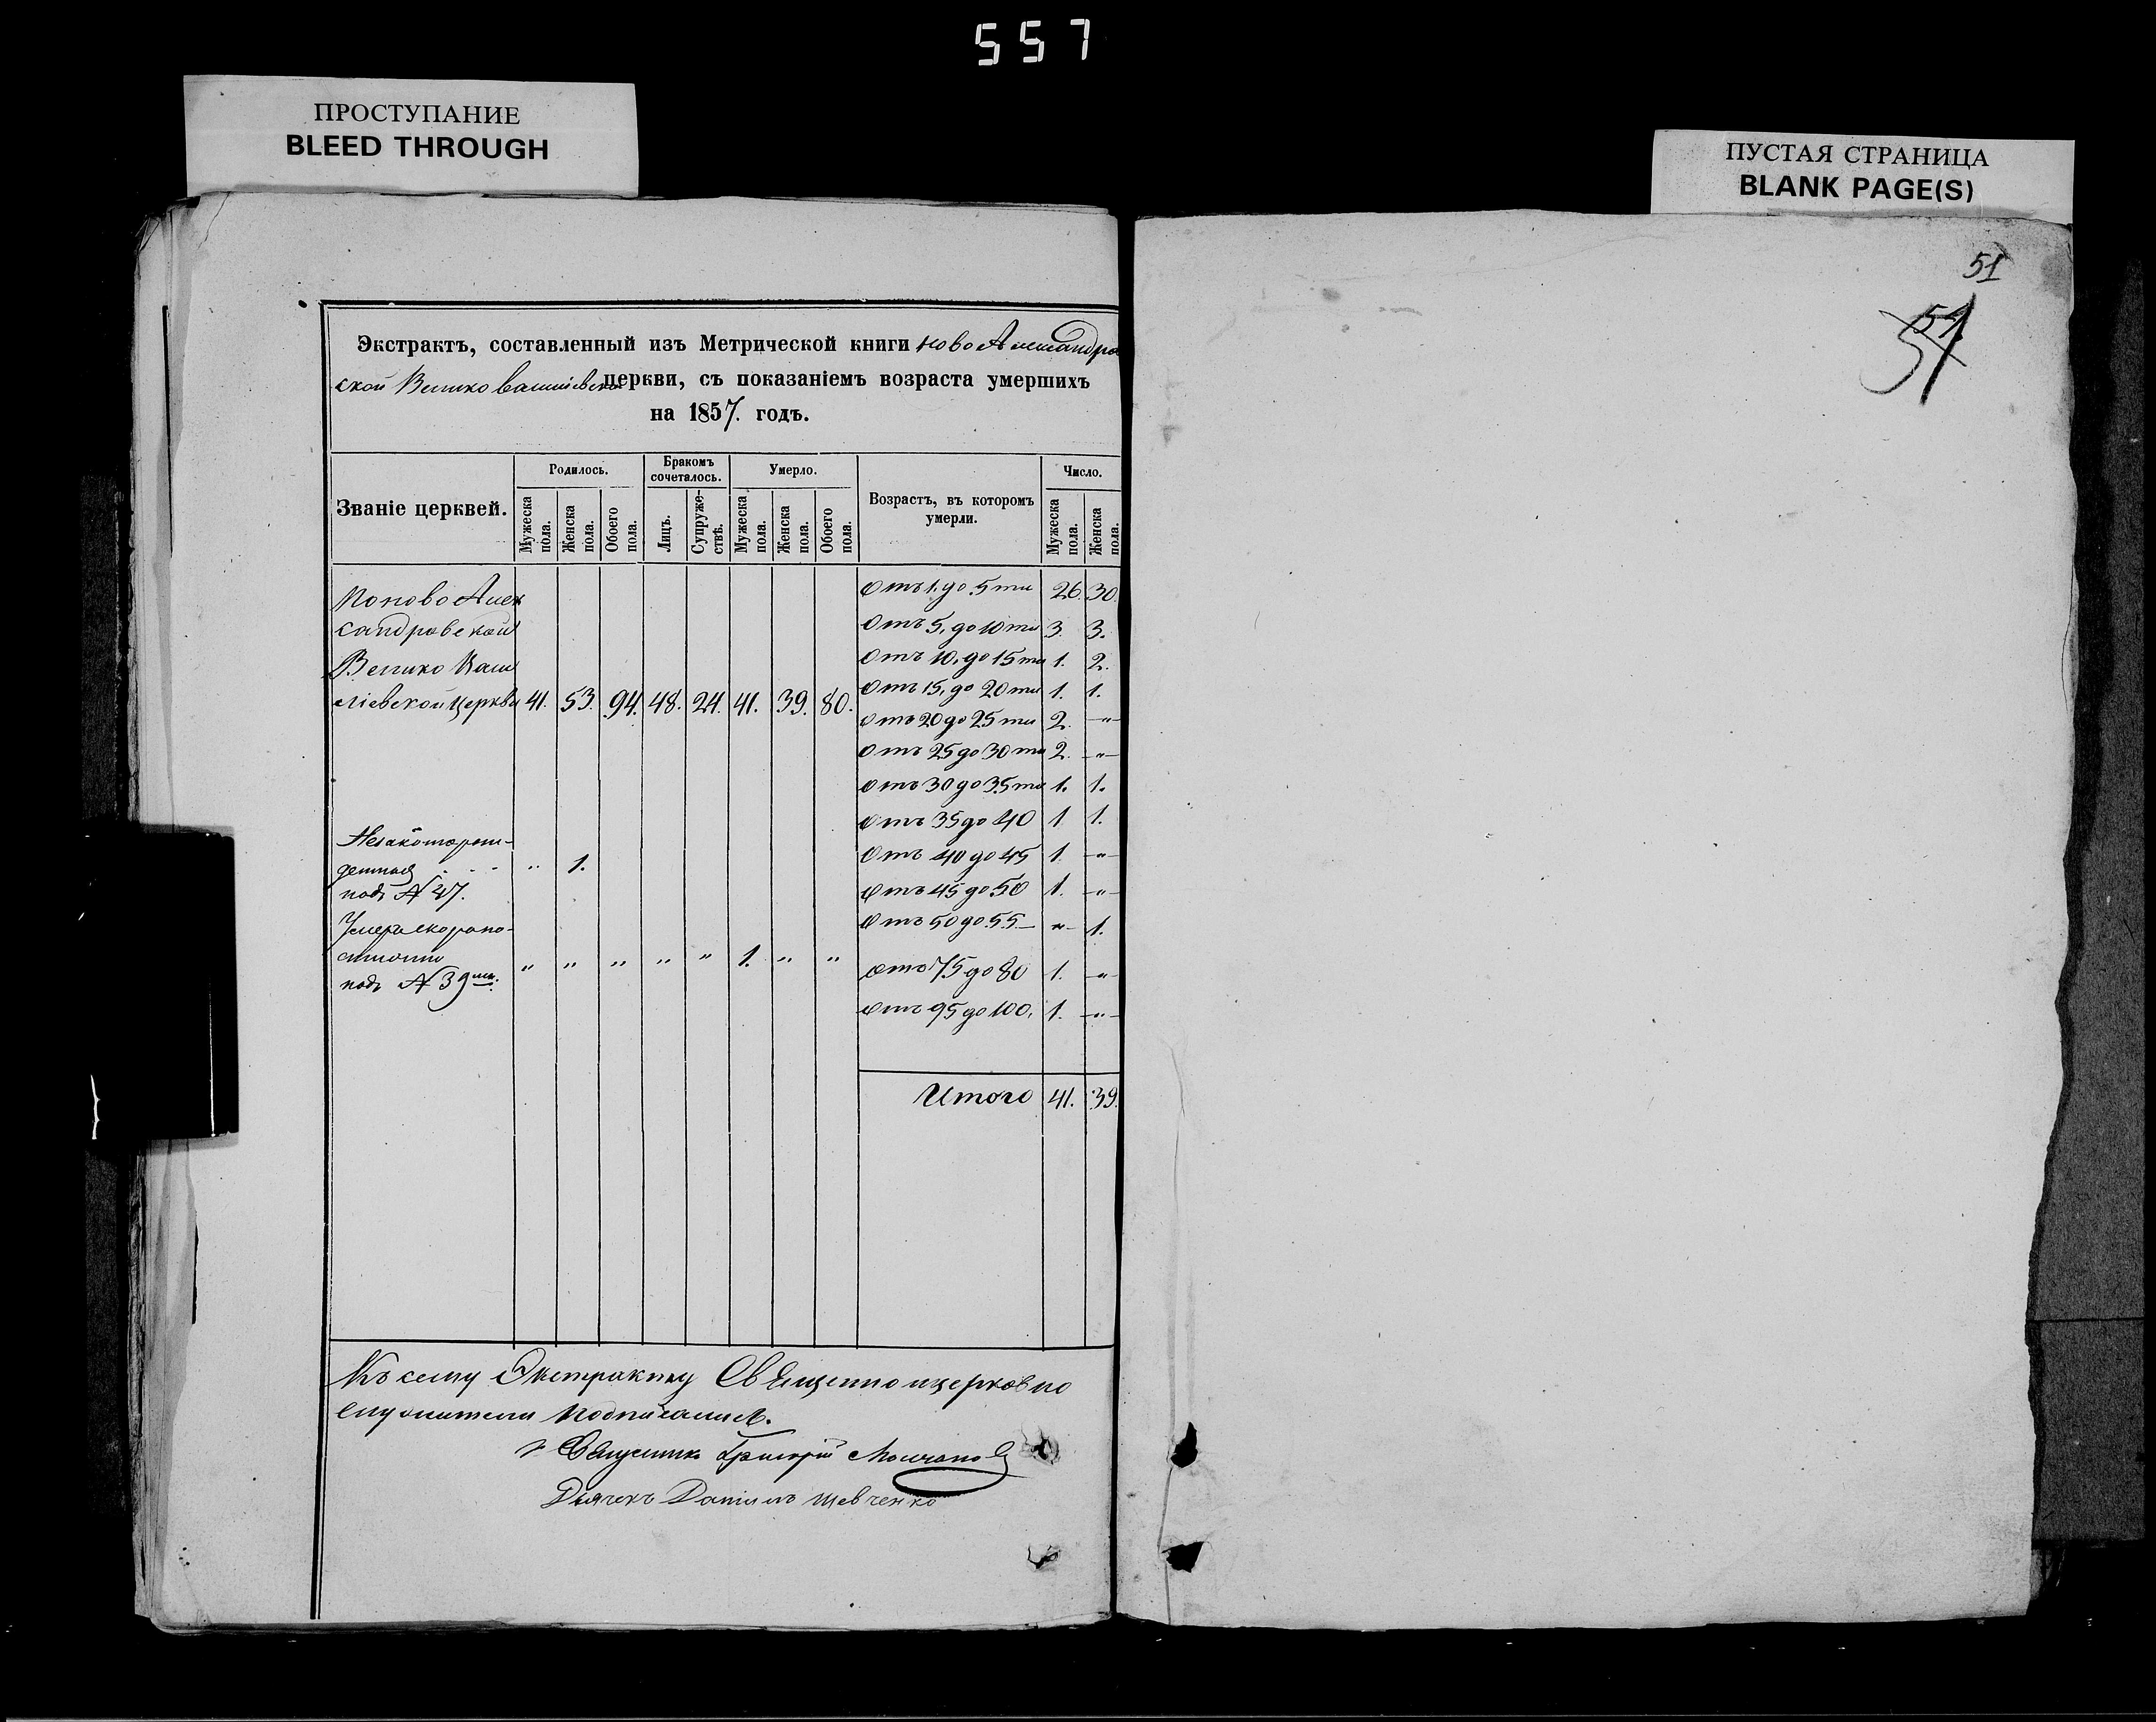 557
ПРОСТУПАНИЕ
BLEED THROUGH
ПУСТАЯ СТРАНИЦА
BLANK PAGE(S)
51
51
Экстрактъ, составленный изъ Метрической книги Ново Александров
ской Велико Василіевской церкви, съ показаніемъ возраста умершихъ
на 1857. годъ.
Званіе церквей.
Родилось.
Бракомъ сочеталось.
Умерло.
Возрастъ, въ которомъ умерли.
Число.
Мужеска пола.
Женска пола.
Обоего пола.
Лицъ.
Супружествъ.
Мужеска пола.
Женска пола.
Обоего пола.
Мужеска пола.
Женска пола.
По Ново Алек
сандровской
Велико Васи
ліевской Церкви 41. 53. 94. 48. 24. 41. 39. 80.
отъ 1. до 5ти 26. 30.
отъ 5. до 10ти 3. 3.
отъ 10. до 15ти 1. 2.
отъ 15. до 20ти 1. 1.
отъ 20 до 25ти 2. -"-
отъ 25 до 30ти 2. -"-
отъ 30 до 35ти 1. 1.
отъ 35 до 40 1 1.
отъ 40 до 45 1. -"-
отъ 45 до 50 1. -"-
отъ 50 до 55 -"- 1.
отъ 75 до 80 1. -"-
отъ 95 до 100. 1. -"-
Итого 41. 39.
Незаконорож-
денная " 1.
подъ № 47.
Умеръ скоропо-
стижно " " " " " 1. " "
подъ № 39мъ.
Къ сему Экстракту Священно и церковно
служители подписались.
Священникъ Григорій Молчановъ
Дьячекъ Даніилъ Шевченко